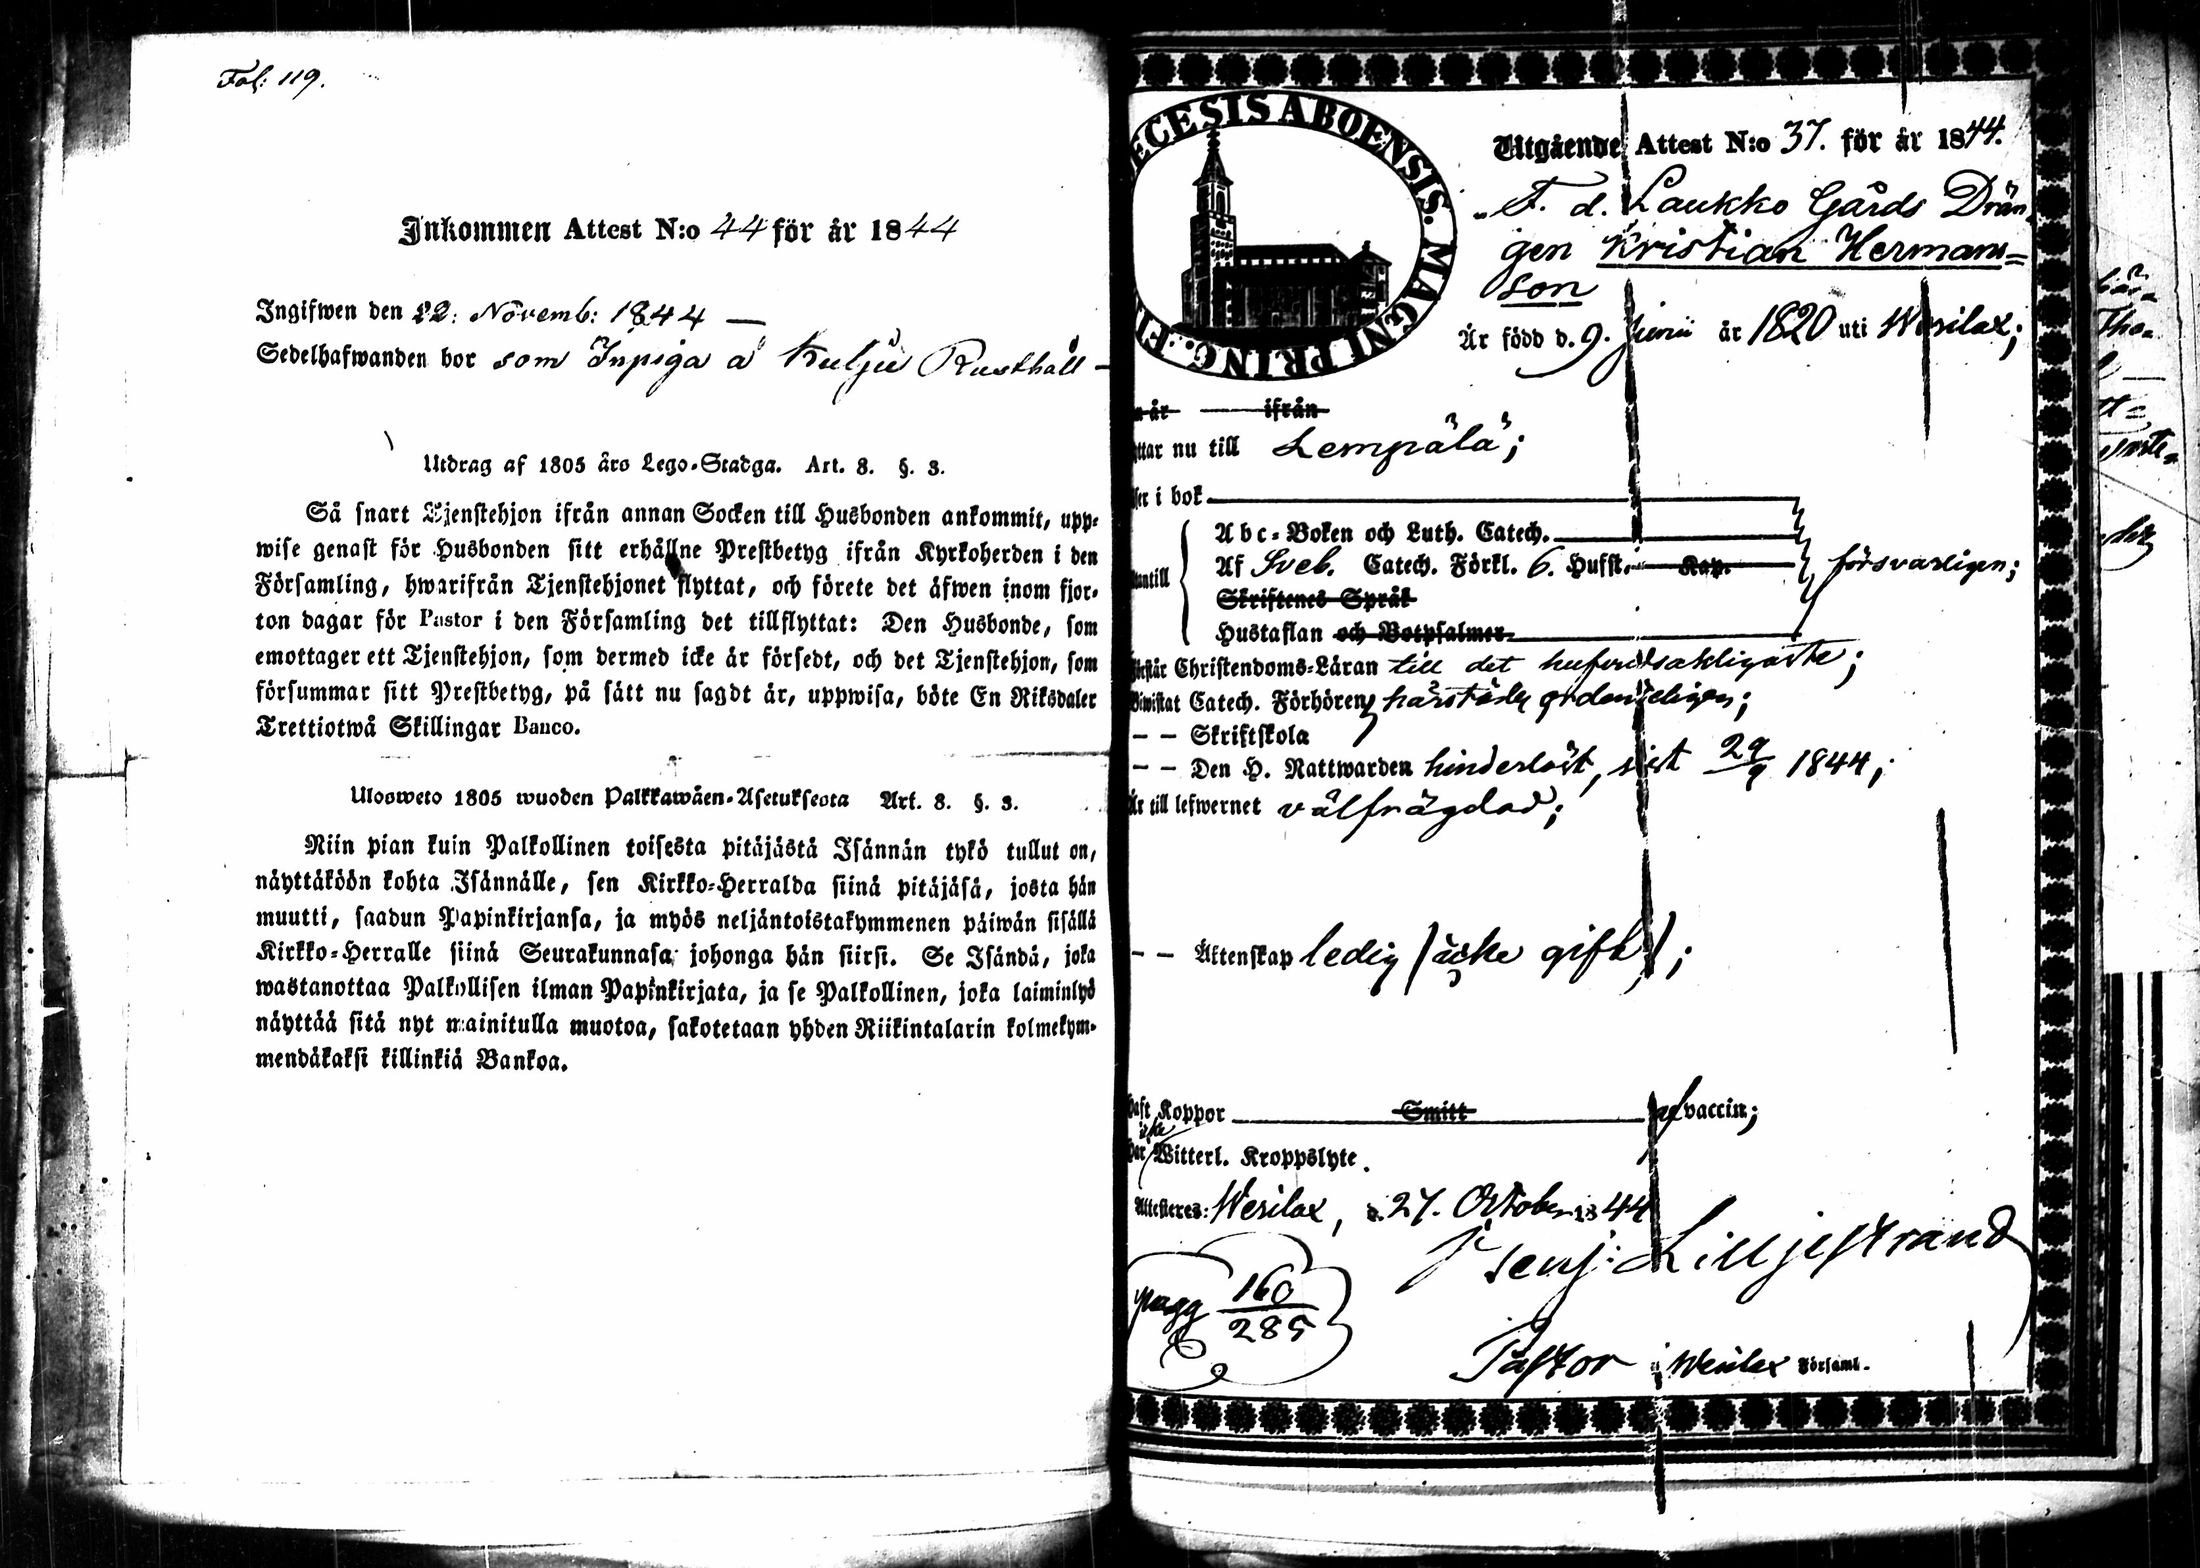 Fol: 119.
Inkommen Attest N:o 44 för år 1844
Ingifwen den 22: Novemb: 1844 —
Sedelhafwanden bor som Inpiga å Kulju Rusthåll —
Utdrag af 1805 års Lego-Stadga. Art. 8. §. 3.
Så snart Tjenstehjon ifrån annan Socken till Husbonden ankommit, upp-
wise genast för Husbonden sitt erhållne Prestbetyg ifrån Kyrkoherden i den
Församling, hwarifrån Tjenstehjonet flyttat, och förete det äfwen inom fjor-
ton dagar för Pastor i den Församling det tillflyttat: Den Husbonde, som
emottager ett Tjenstehjon, som dermed icke är försedt, och det Tjenstehjon, som
försummar sitt Prestbetyg, på sätt nu sagdt är, uppwisa, böte En Riksdaler
Trettiotwå Skillingar Banco.
Ulosweto 1805 wuoden Palkkawäen-Asetuksesta Art. 8. §. 3.
Niin pian kuin Palkollinen toisesta pitäjästä Isännän tykö tullut on,
näyttäköön kohta Isännälle, sen Kirkko-Herralda siinä pitäjäsä, josta hän
muutti, saadun Papinkirjansa, ja myös neljäntoistakymmenen päiwän sisällä
Kirkko-Herralle siinä Seurakunnasa johonga hän siirsi. Se Isändä, joka
wastanottaa Palkollisen ilman Papinkirjata, ja se Palkollinen, joka laiminlyö
näyttää sitä nyt mainitulla muotoa, sakotetaan yhden Riikintalarin kolmekym-
mendäkaksi killinkiä Bankoa.
ECESIS ABOENSIS. MAGNI PRINC. FI
Utgående Attest N:o 37. för år 1844.
F. d. Laukko Gårds Drän
gen Kristian Hermans=
son
Är född d. 9. Junii år 1820 uti Wesilax;
år — ifrån
ttar nu till Lempälä;
ser i bok
Abc-Boken och Luth. Catech.
Af Sveb. Catech. Förkl. 6. Hufst. Kap. försvarligen;
Skriftenes Språk
Hustaflan och Botpsalmer
Förstår Christendoms-Läran till det hufvudsakligaste;
Biwistat Catech. Förhören härstädes ordenteligen;
— — Skriftskola
— — Den H. Nattwarden hinderlöst, sist 29/9 1844;
Är till lefwernet välfrägdad;
— — Äktenskap ledig (icke gift);
haft Koppor Smitt af vaccin;
icke
har Witterl. Kroppslyte.
Attesteres: Wesilax, d. 27. October 1844
Lilljestrand
pagg 160/285
Pastor i Wesilax Församl.